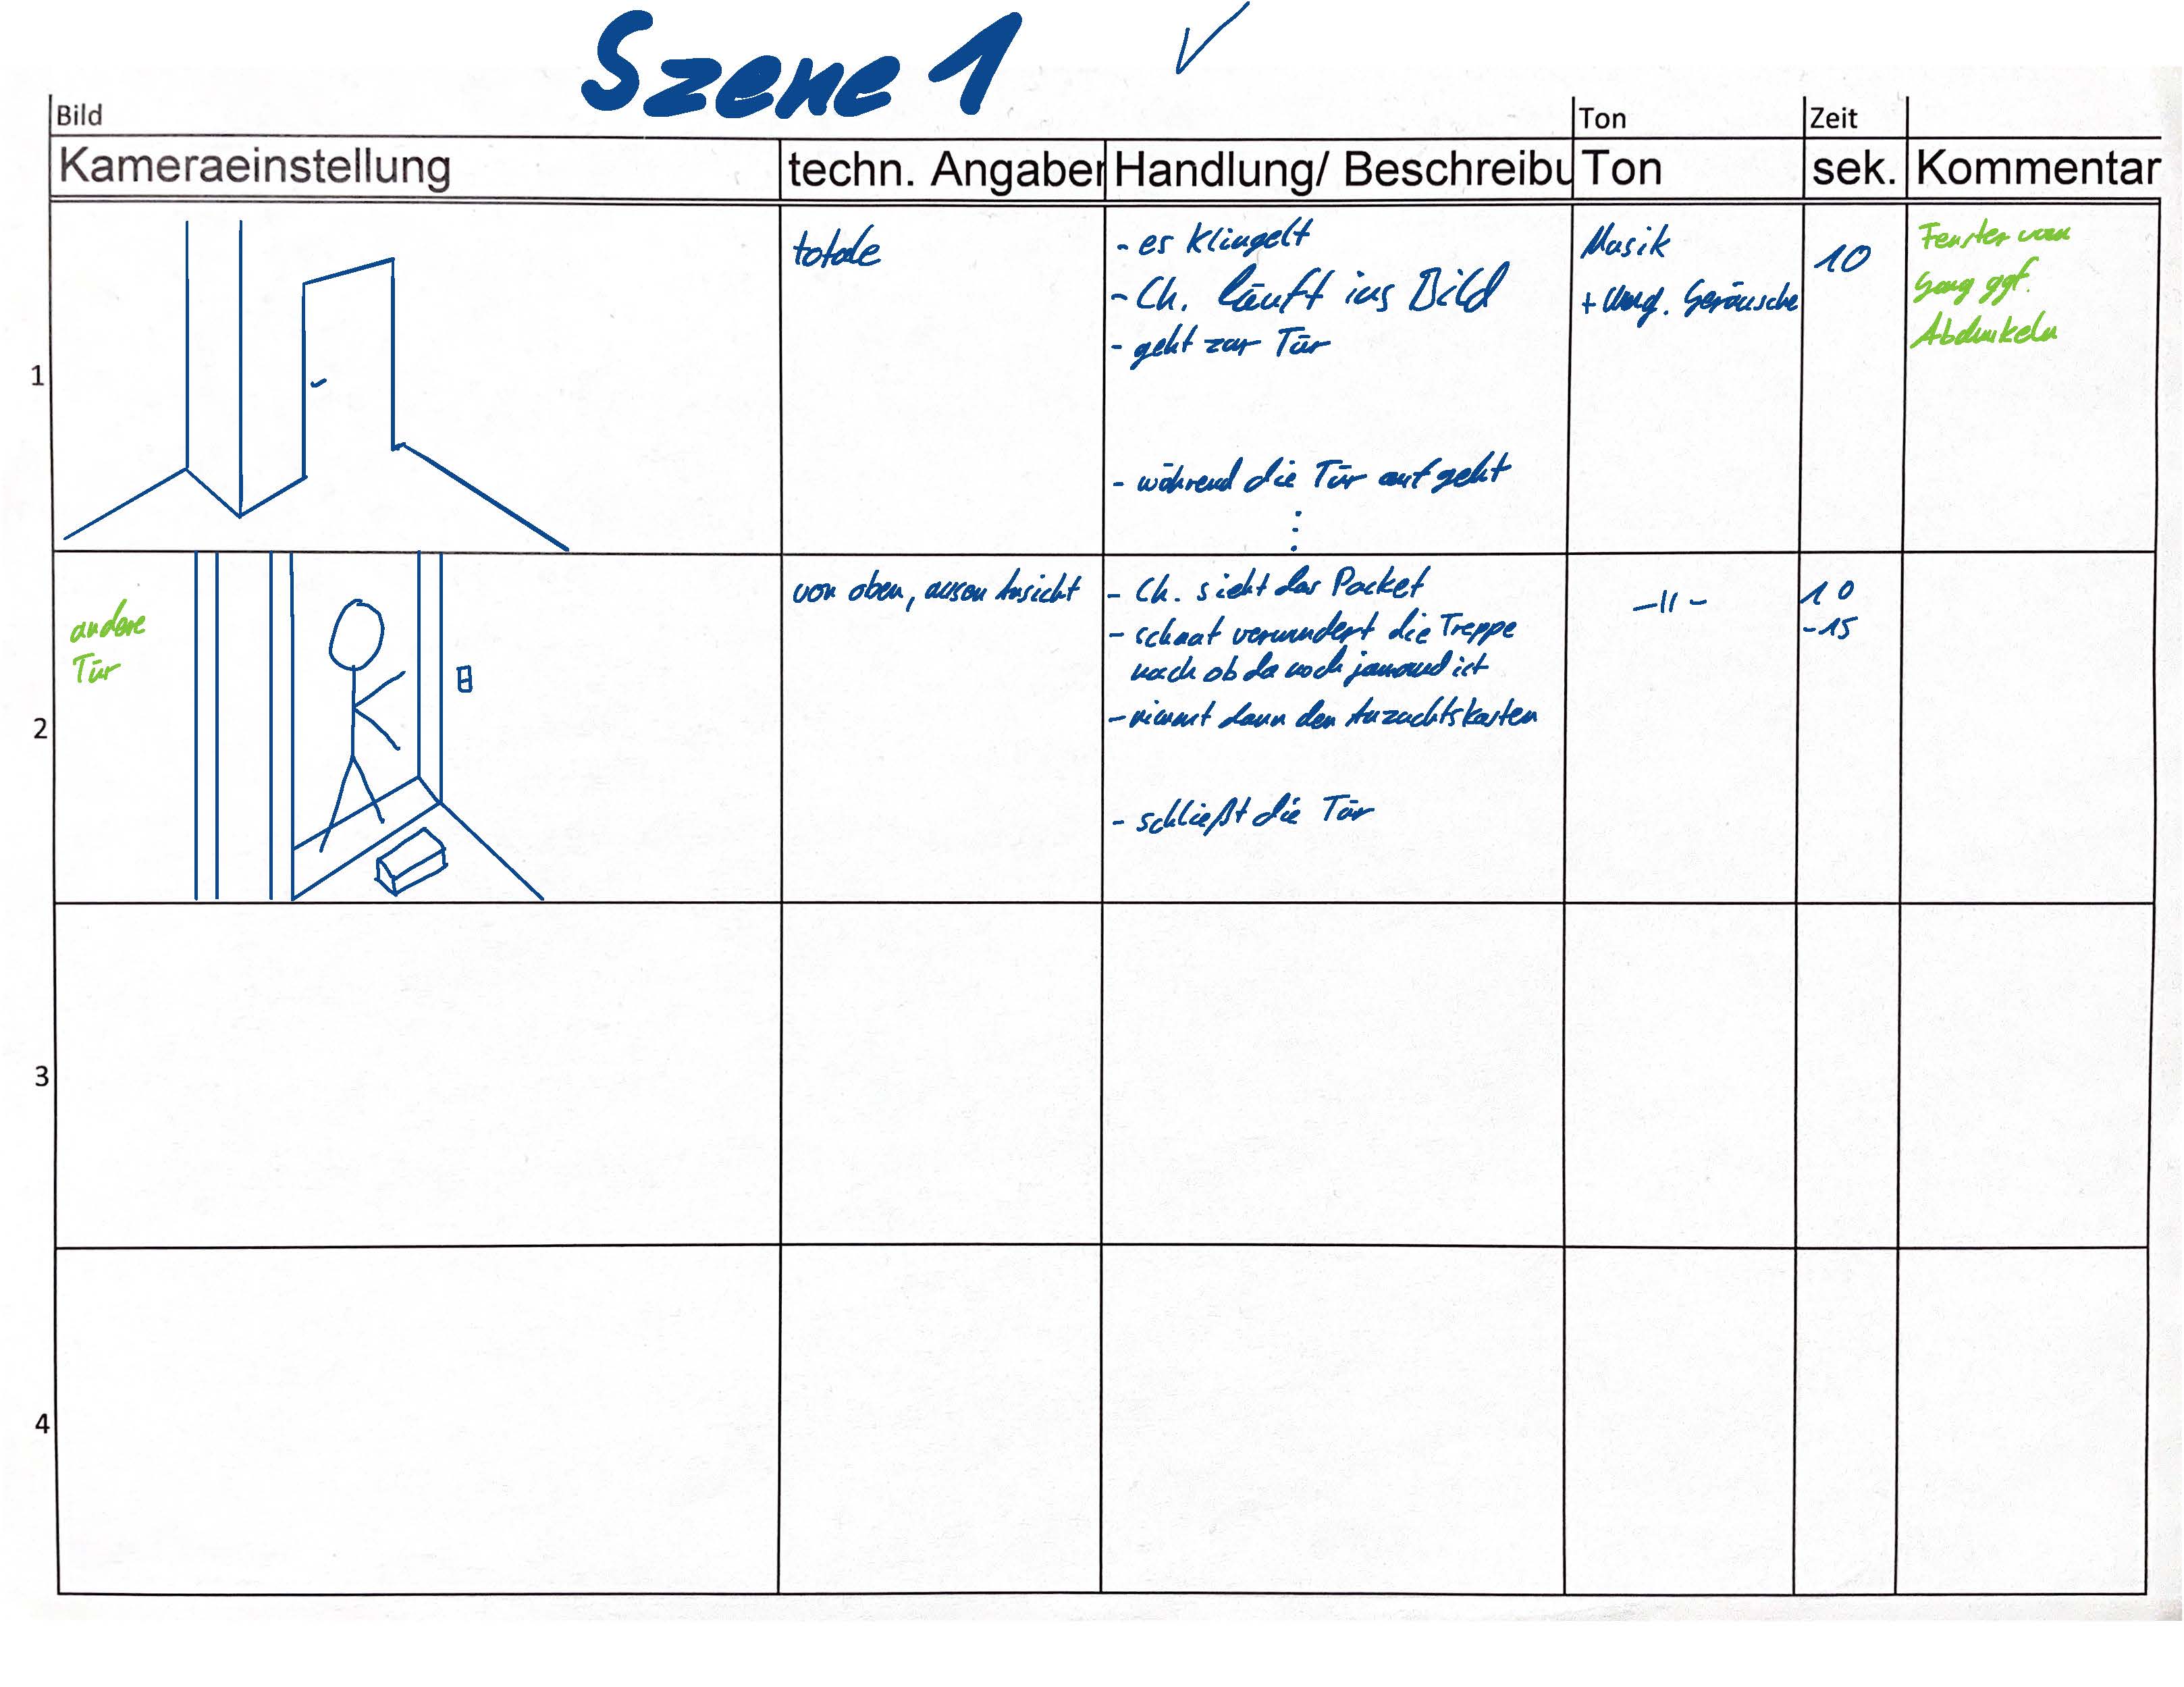 Szene 1 ✓
Bild
Ton
Zeit
Kameraeinstellung
techn. Angaben
Handlung/ Beschreibu
Ton
sek.
Kommentar
1
totale
- es klingelt
- Ch. läuft ins Bild
- geht zur Tür
- während die Tür auf geht
⋮
Musik
+ Umg. Geräusche
10
Fenster vom
Gang ggf.
Abdunkeln
2
andere
Tür
von oben, ausen Ansicht
- Ch. sieht das Packet
- schaut verwundert die Treppe
nach ob da noch jemand ist
- nimmt dann den Anzuchtskasten
- schließt die Tür
-11-
10
-15
3
4